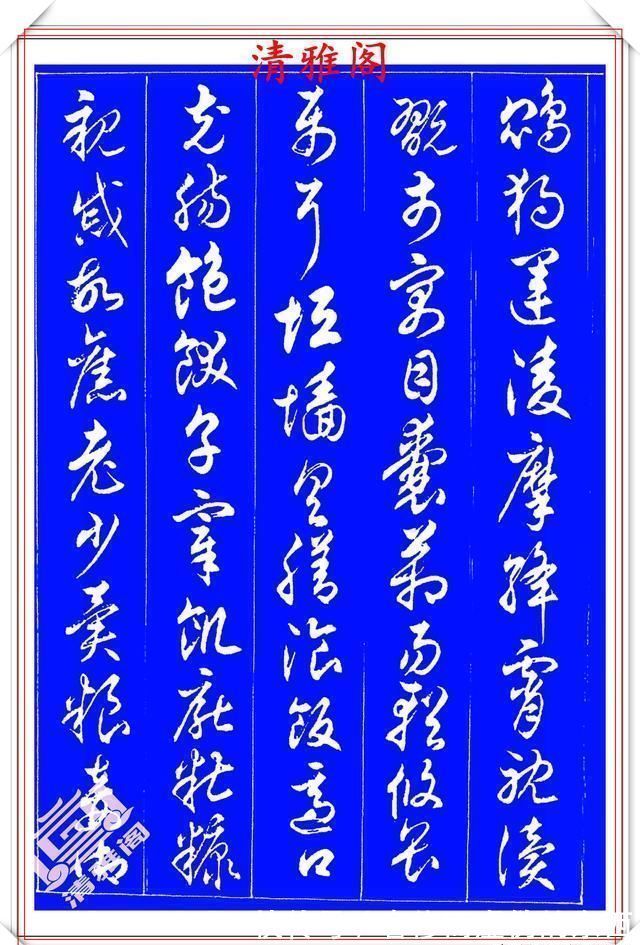 清雅阁
鵾獨運凌摩絳霄耽讀
翫市寓目囊箱易輶攸畏
屬耳垣墻具膳湌飯適口
充腸飽飫亨宰飢厭糟糠
親戚故舊老少異粮妾御
清雅阁